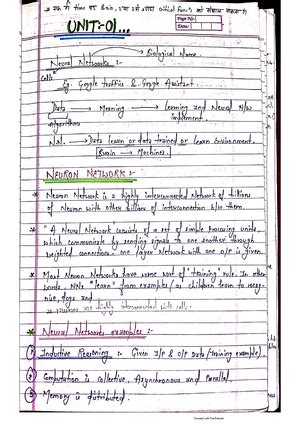 UNIT:-01...
Page No.
Date:
Biological Name
Neural Networks :-
Cells
Eg. Google traffics & Google Assistant
Data → Meaning → Learning and Neural N/w
Algorithms implement.
N.N. → Data learn or data trained or learn Environment.
Brain → Machines.
NEURON NETWORK :-
* Neuron Network is a highly interconnected Network of billions
of Neuron with other billions of interconnection b/w them.
* "A Neural Network consists of a set of simple units,
which communicate by sending signals to one another through
weighted connections. one layer Network with one o/p is given.
* Most Neuron Networks have some sort of "training" rule. In other
words, NNs "learn" from examples (as children learn to recog-
nise dogs and
are highly interconnected with cells.
* Neural Networks examples :-
① Inductive Reasoning :- Given I/P & O/P Data (training example)
② Computation is collective, Asynchronous and Parallel
③ Memory is distributed.